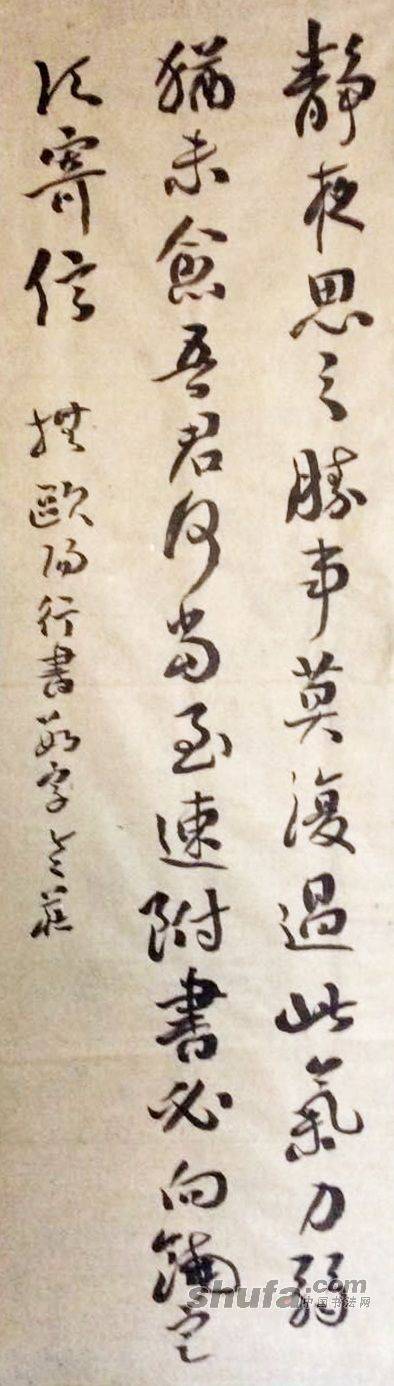 靜夜思之勝事莫復過此氣力弱
猶未愈吾君何當至速附書必向定
須寄信
歐陽行書數字
shufa.com
中国书法网